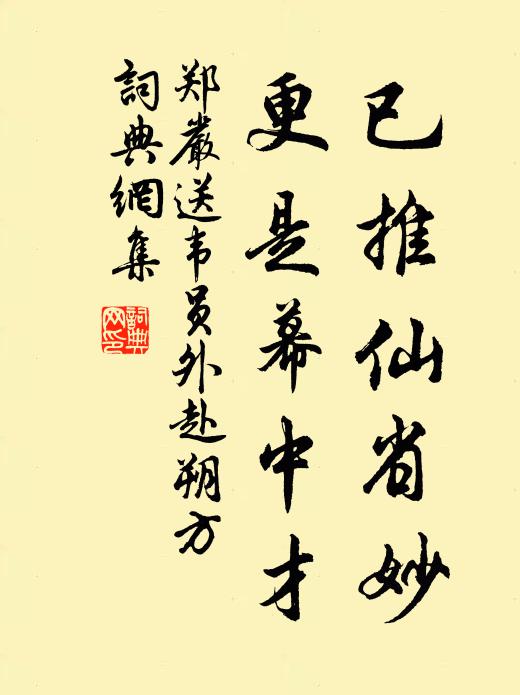 已推仙省妙
更是幕中才
郑嚴送韦员外赴朔方
詞典網集
詞典网印